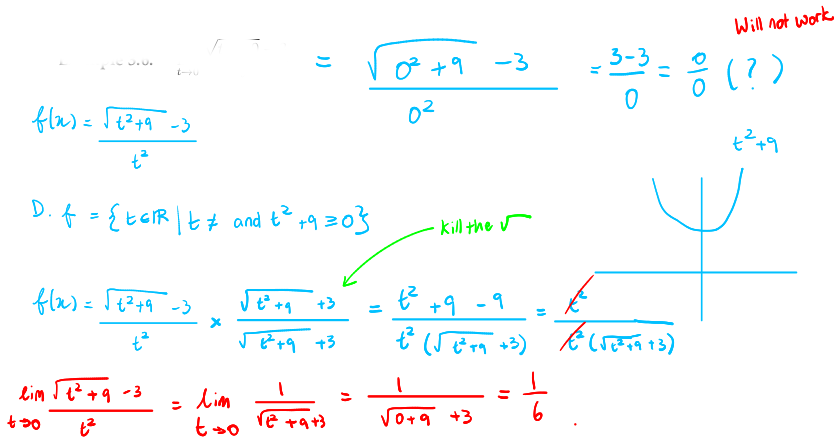 Will not work
= (√(0² + 9) - 3)/0² = (3-3)/0 = 0/0 (?)
f(x) = (√(t²+9) - 3)/t²
t²+9
D. f = {t∈IR | t ≠ and t² + 9 ≥ 0}
kill the √
f(x) = (√(t²+9) - 3)/t² × (√(t²+9) + 3)/(√(t²+9) + 3) = (t² + 9 - 9)/(t² (√(t²+9) + 3)) = t²/(t² (√(t²+9) + 3))
lim t→0 (√(t²+9) - 3)/t² = lim t→0 1/(√(t²+9) + 3) = 1/(√(0+9) + 3) = 1/6 .